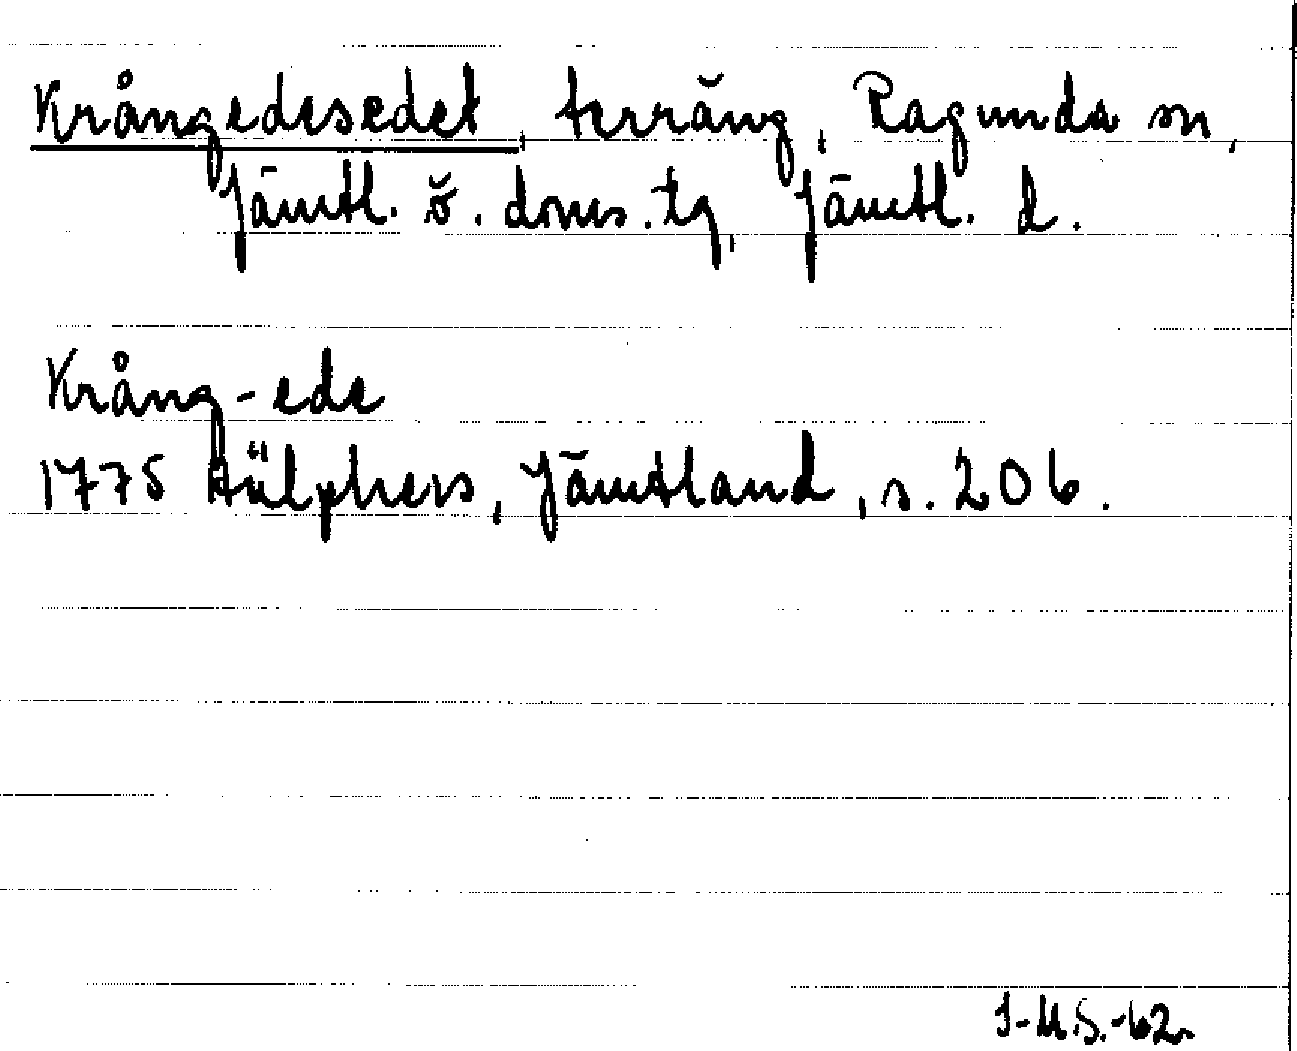 Krångedesedet, terräng, Ragunda sn,
Jämtl. ö. doms. tg, Jämtl. l.
Krång-ede
1775 Hülphers, Jämtland, s. 206.
I-M.S.-62